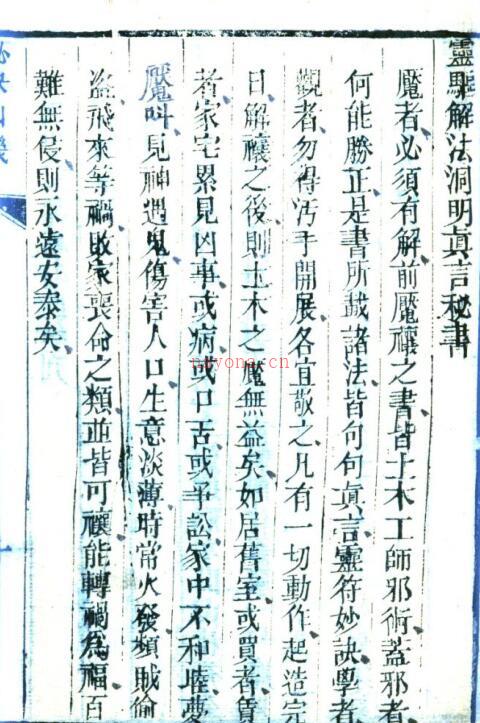 靈驅解法洞明眞言秘書
魘者必須有解前魘禳之書皆土木工師邪術蓋邪者
何能勝正是書所載諸法皆句句眞言靈符妙訣學者
觀者勿得汚手開展各宜敬之凡有一切動作起造完
日解禳之後則土木之魘無益矣如居舊室或買者賃
者家宅累見凶事或病或口舌或爭訟家中不和睦夢
魘叫見神遇鬼傷害人口生意淡薄時常火發頻賊偷
盜飛來等禍敗家喪命之類並皆可禳能轉禍為福百
難無侵則永遠安泰矣
nayona.cn